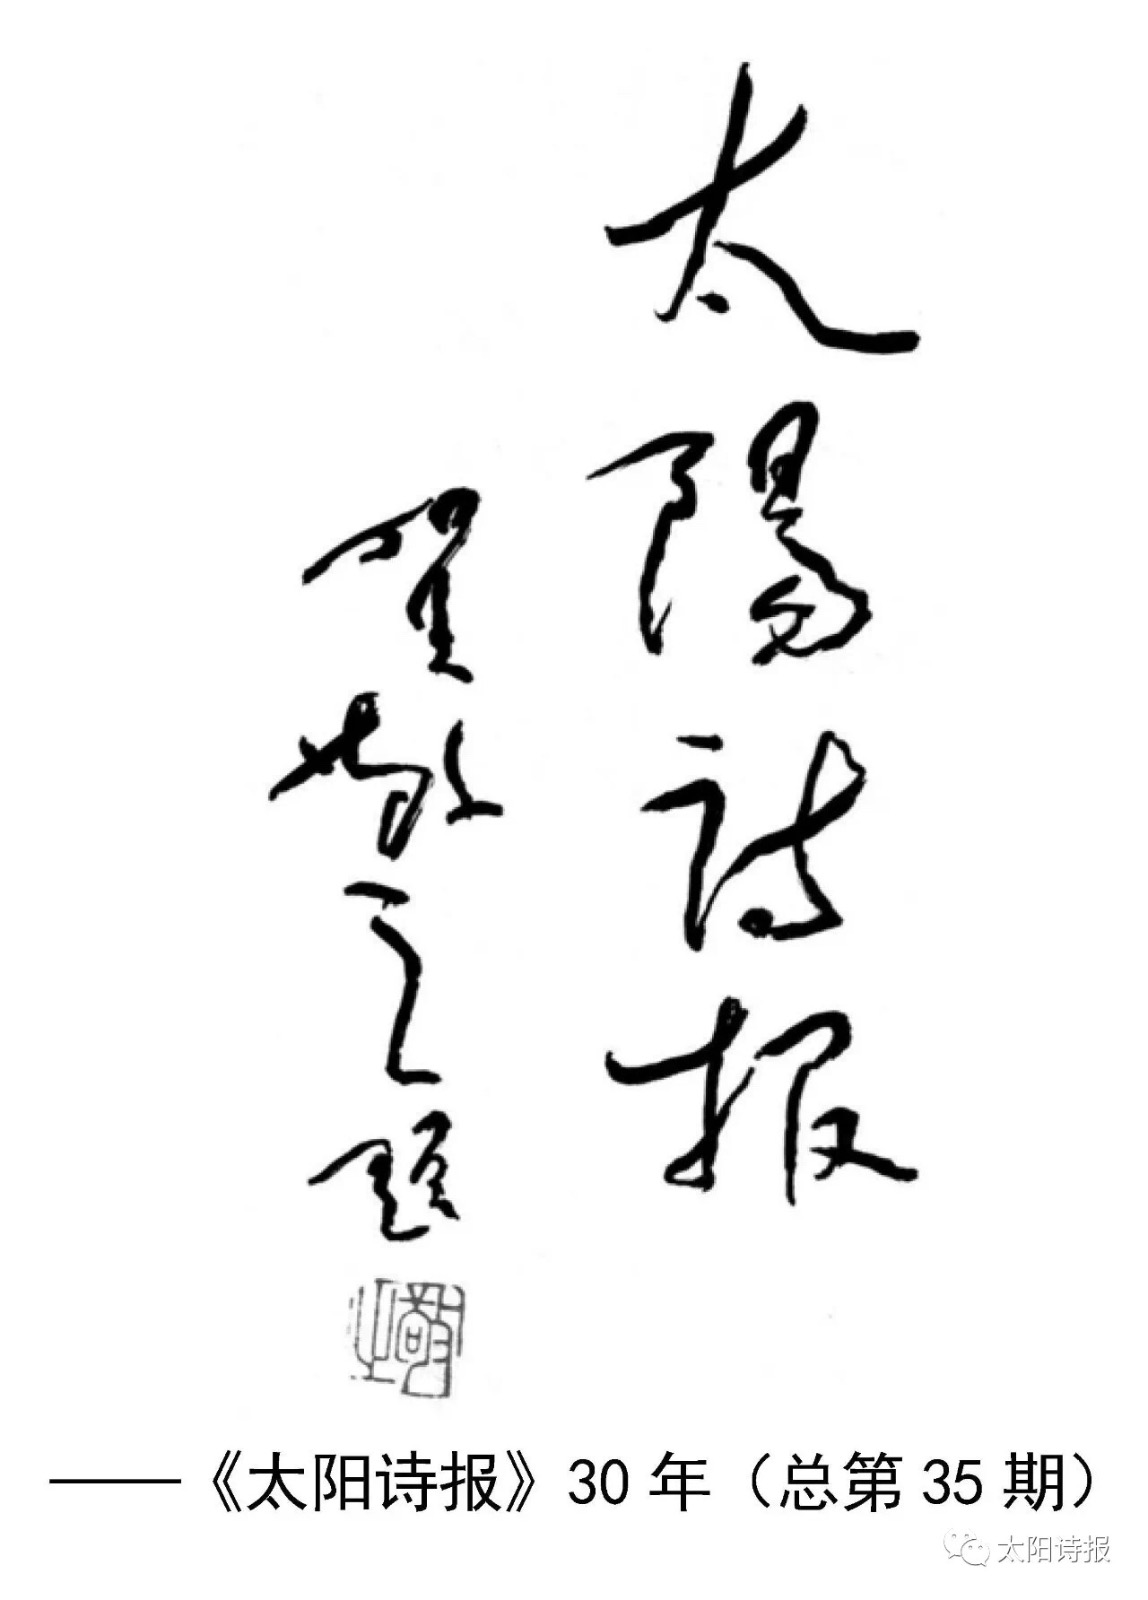 太陽诗报
贺敬之题
敬之
——《太阳诗报》30年（总第35期）
太阳诗报